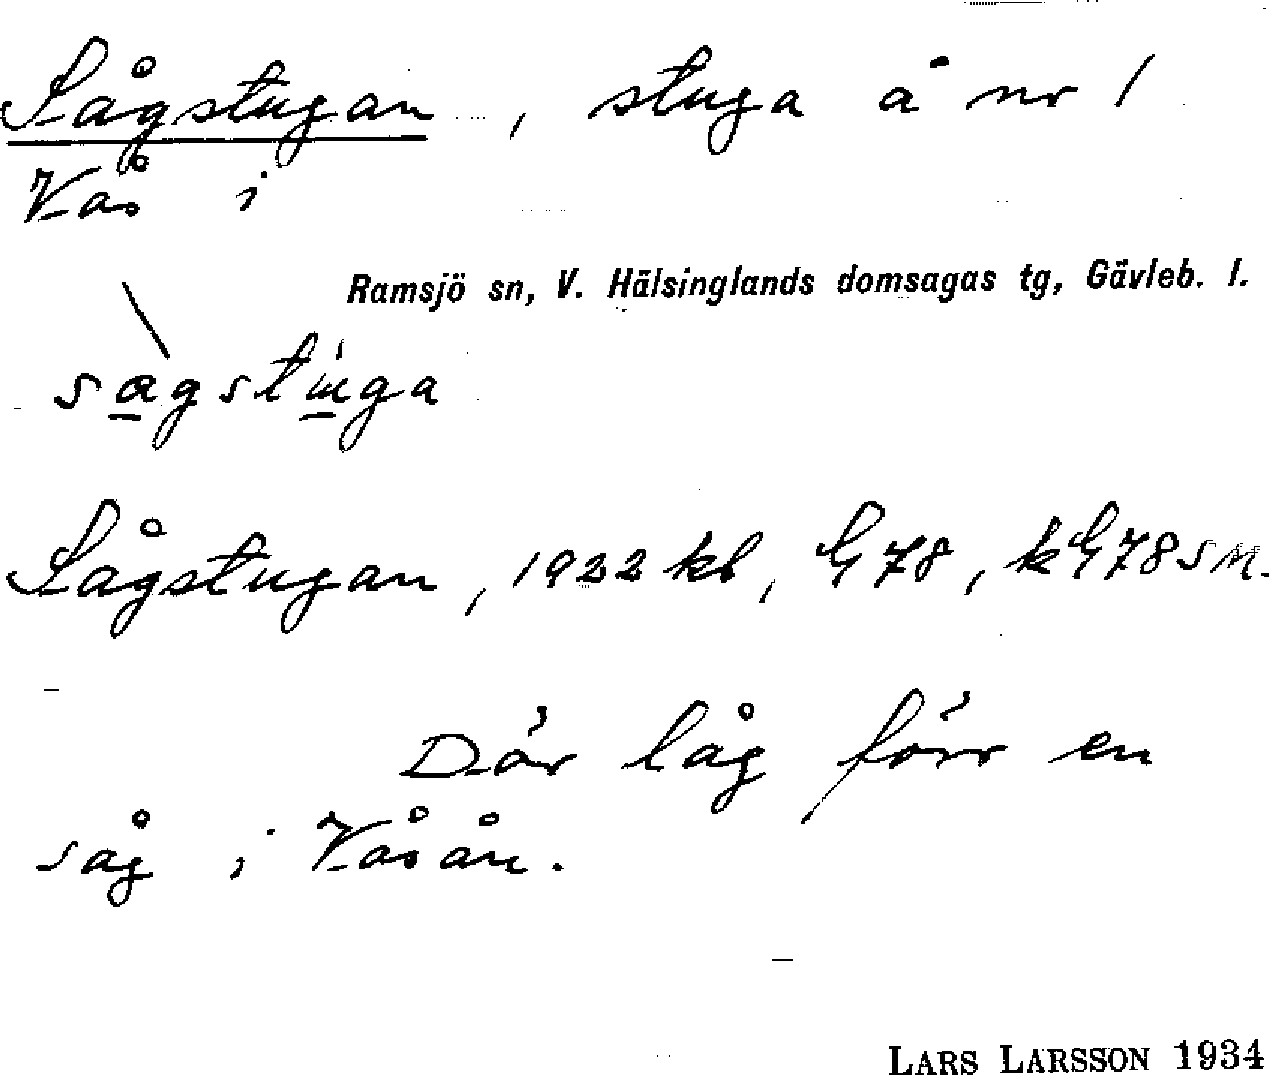 Sågstugan, stuga å nr 1
Kås i
Ramsjö sn, V. Hälsinglands domsagas tg, Gävleb. l.
Sågstugan, 1922 kb, G 78, k G 78 SM.
Där låg förr en
såg i Kåsån.
LARS LARSSON 1934